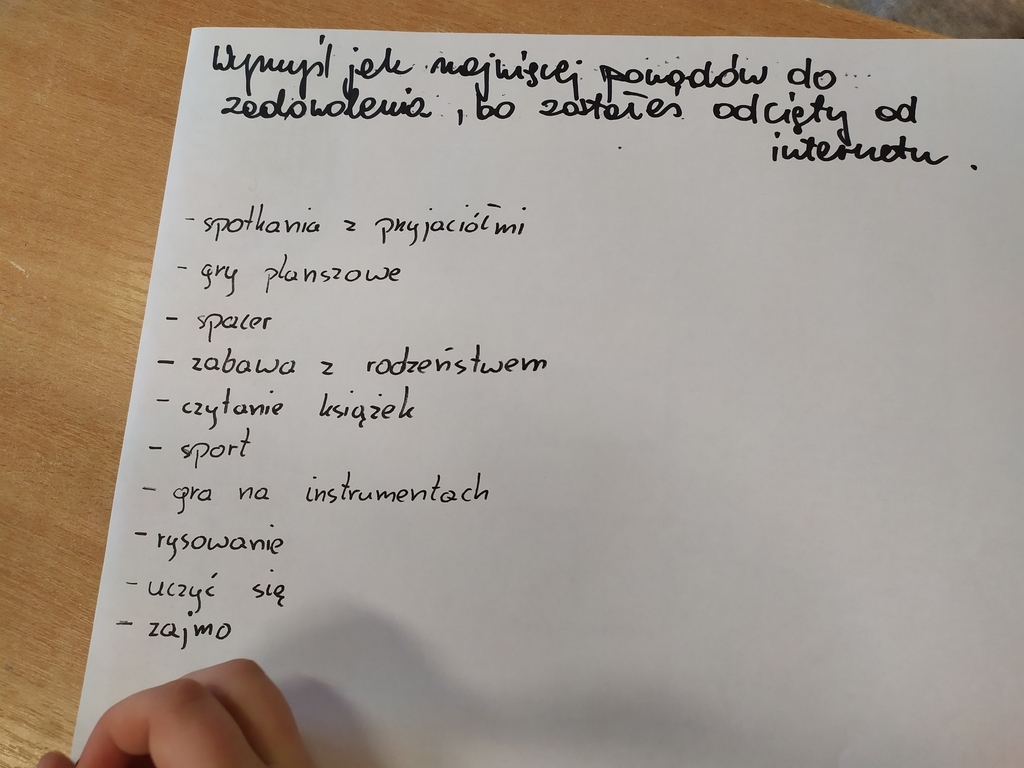 Wymyśl jak najwięcej powodów do
zadowolenia, bo zostałeś odcięty od
internetu.
- spotkania z przyjaciółmi
- gry planszowe
- spacer
- zabawa z rodzeństwem
- czytanie książek
- sport
- gra na instrumentach
- rysowanie
- uczyć się
- zajmo